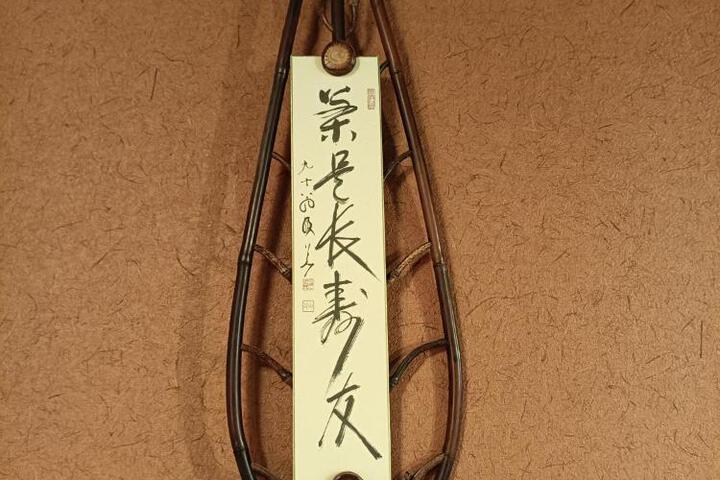 茶是長寿友
九十翁